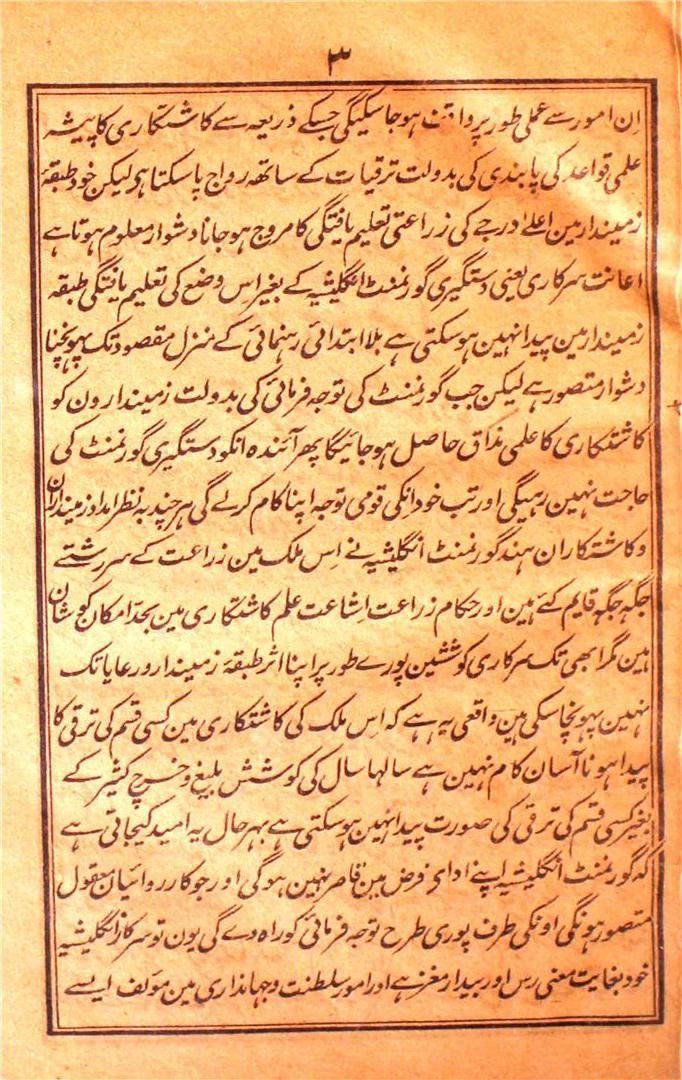 ۳
اِن امور سے عملی طور پر واقف ہو جا سکیگی جسکے ذریعہ سے کاشتکاری کا پیشہ
علمی قواعد کی پابندی کی بدولت ترقیات کے ساتھ رواج پا سکتا ہی لیکن خود طبقۂ
زمیندار مین اعلےٰ درجے کی زراعتی تعلیم یافتگی کا مروج ہو جانا دشوار معلوم ہوتا ہے
اعانت سرکاری یعنی دستگیری گورنمنٹ انگلیشیہ کے بغیر اس وضع کی تعلیم یافتگی طبقہ
زمیندار مین پیدا نہین ہو سکتی ہے بلا ابتدائی رہنمائی کے منزل مقصود تک پہونچنا
دشوار متصور ہے لیکن جب گورنمنٹ کی توجہ فرمائی کی بدولت زمیندارون کو
کاشتکاری کا علمی مذاق حاصل ہو جائیگا پھر آئندہ انکو دستگیری گورنمنٹ کی
حاجت نہین رہیگی اور تب خود انکی قومی توجہ اپنا کام کرلے گی ہر چند بہ نظر امداد زمینداران
و کاشتکاران ہند گورنمنٹ انگلیشیہ نے اِس ملک مین زراعت کے سررشتے
جگہ جگہ قایم کئے ہین اور حکام زراعت اِشاعت علم کاشتکاری مین بحدّ امکان کوشان
ہین مگر ابھی تک سرکاری کوششین پورے طور پر اپنا اثر طبقۂ زمیندار و رعایا تک
نہین پہونچا سکی ہین واقعی یہ ہے کہ اِس ملک کی کاشتکاری مین کسی قسم کی ترقی کا
پیدا ہونا آسان کام نہین ہے سالہا سال کی کوشش بلیغ و خرچ کثیر کے
بغیر کسی قسم کی ترقی کی صورت پیدا نہین ہو سکتی ہے بہر حال یہ امید کیجاتی ہے
کہ گورنمنٹ انگلیشیہ اپنے ادای فرض مین قاصر نہین ہو گی اور جو کارروائیان معقول
متصور ہونگی اونکی طرف پوری طرح توجہ فرمائی کو راہ دے گی یون تو سرکار انگلیشیہ
خود بغایت معنی رس اور بیدار مغز ہے اور امور سلطنت و جہانداری مین مولف ایسے